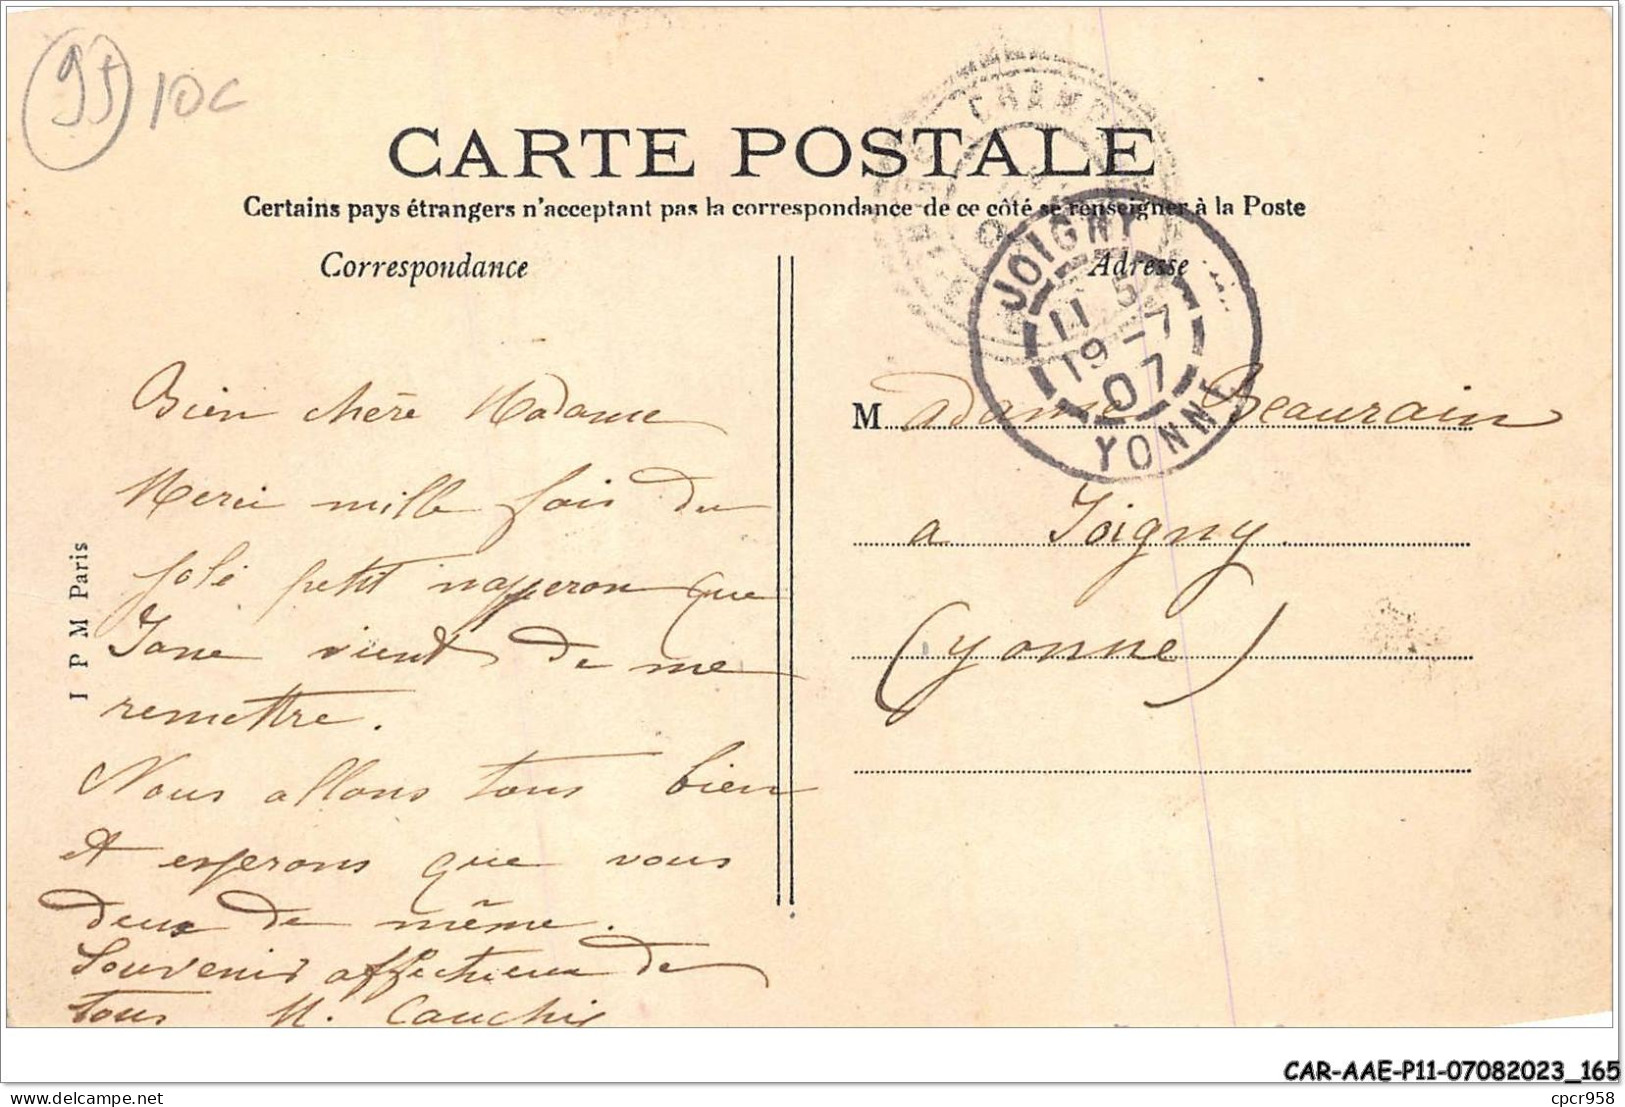 95 10c
CARTE POSTALE
Certains pays étrangers n'acceptant pas la correspondance de ce côté se renseigner à la Poste
Correspondance
Bien chère Madame
Merci mille fois du
joli petit napperon que
Jane vient de me
remettre.
Nous allons tous bien
et esperons que vous
deux de même.
Souvenir affectueux de
tous M. Cauchis
I P M Paris
Adresse
JOIGNY
11 5
19-7
07
YONNE
Madame Beaurain
a Joigny.
(Yonne)
CAR-AAE-P11-07082023_165
cpcr958